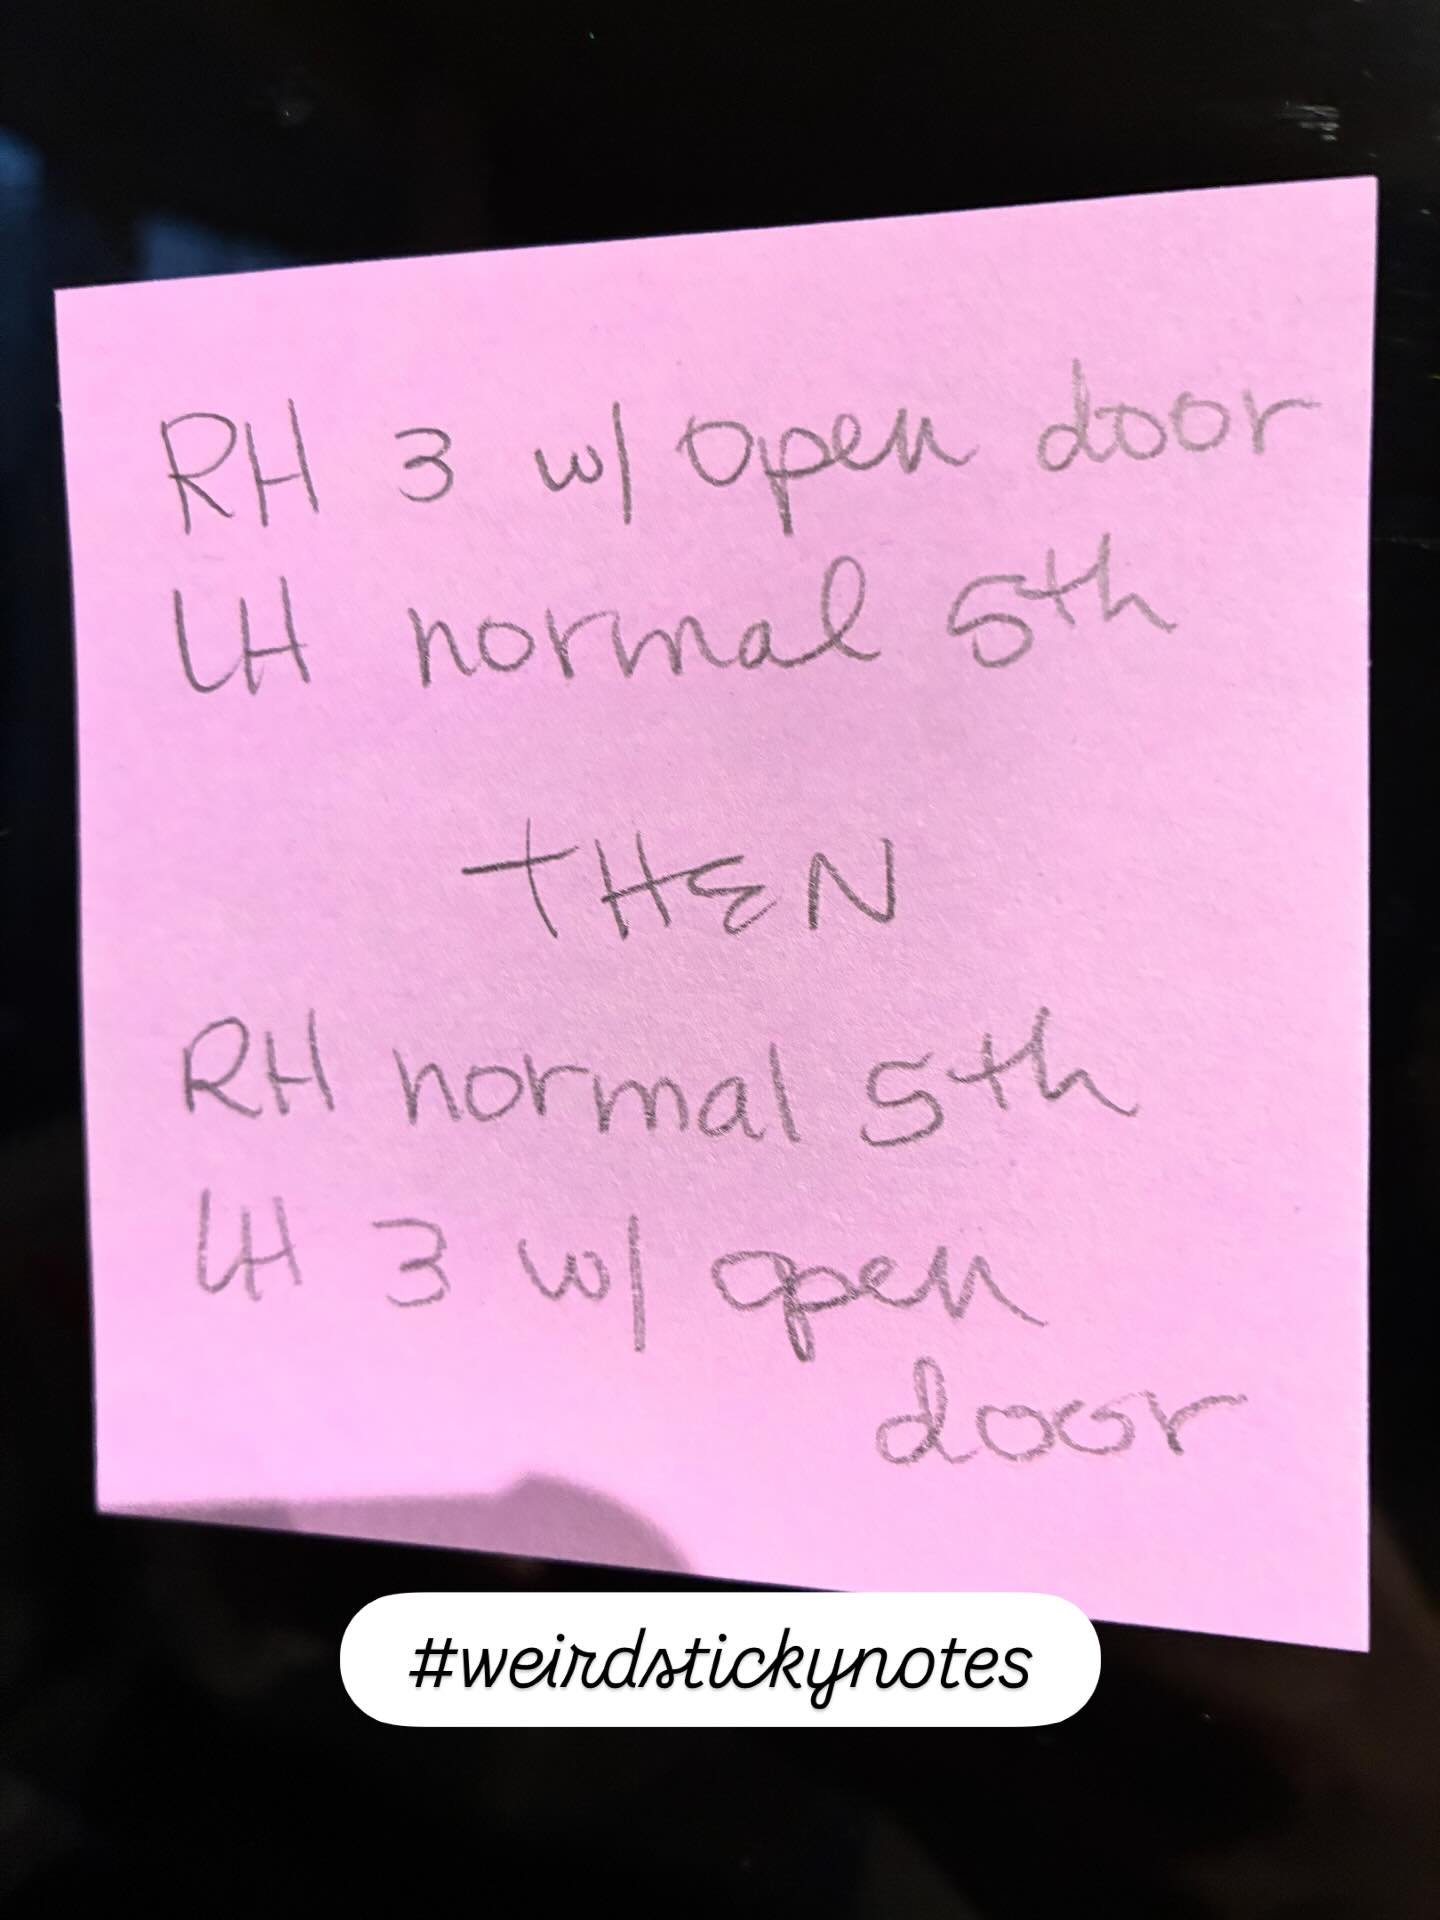 RH 3 w/ open door
LH normal 5th
THEN
RH normal 5th
LH 3 w/ open
door
#weirdstickynotes